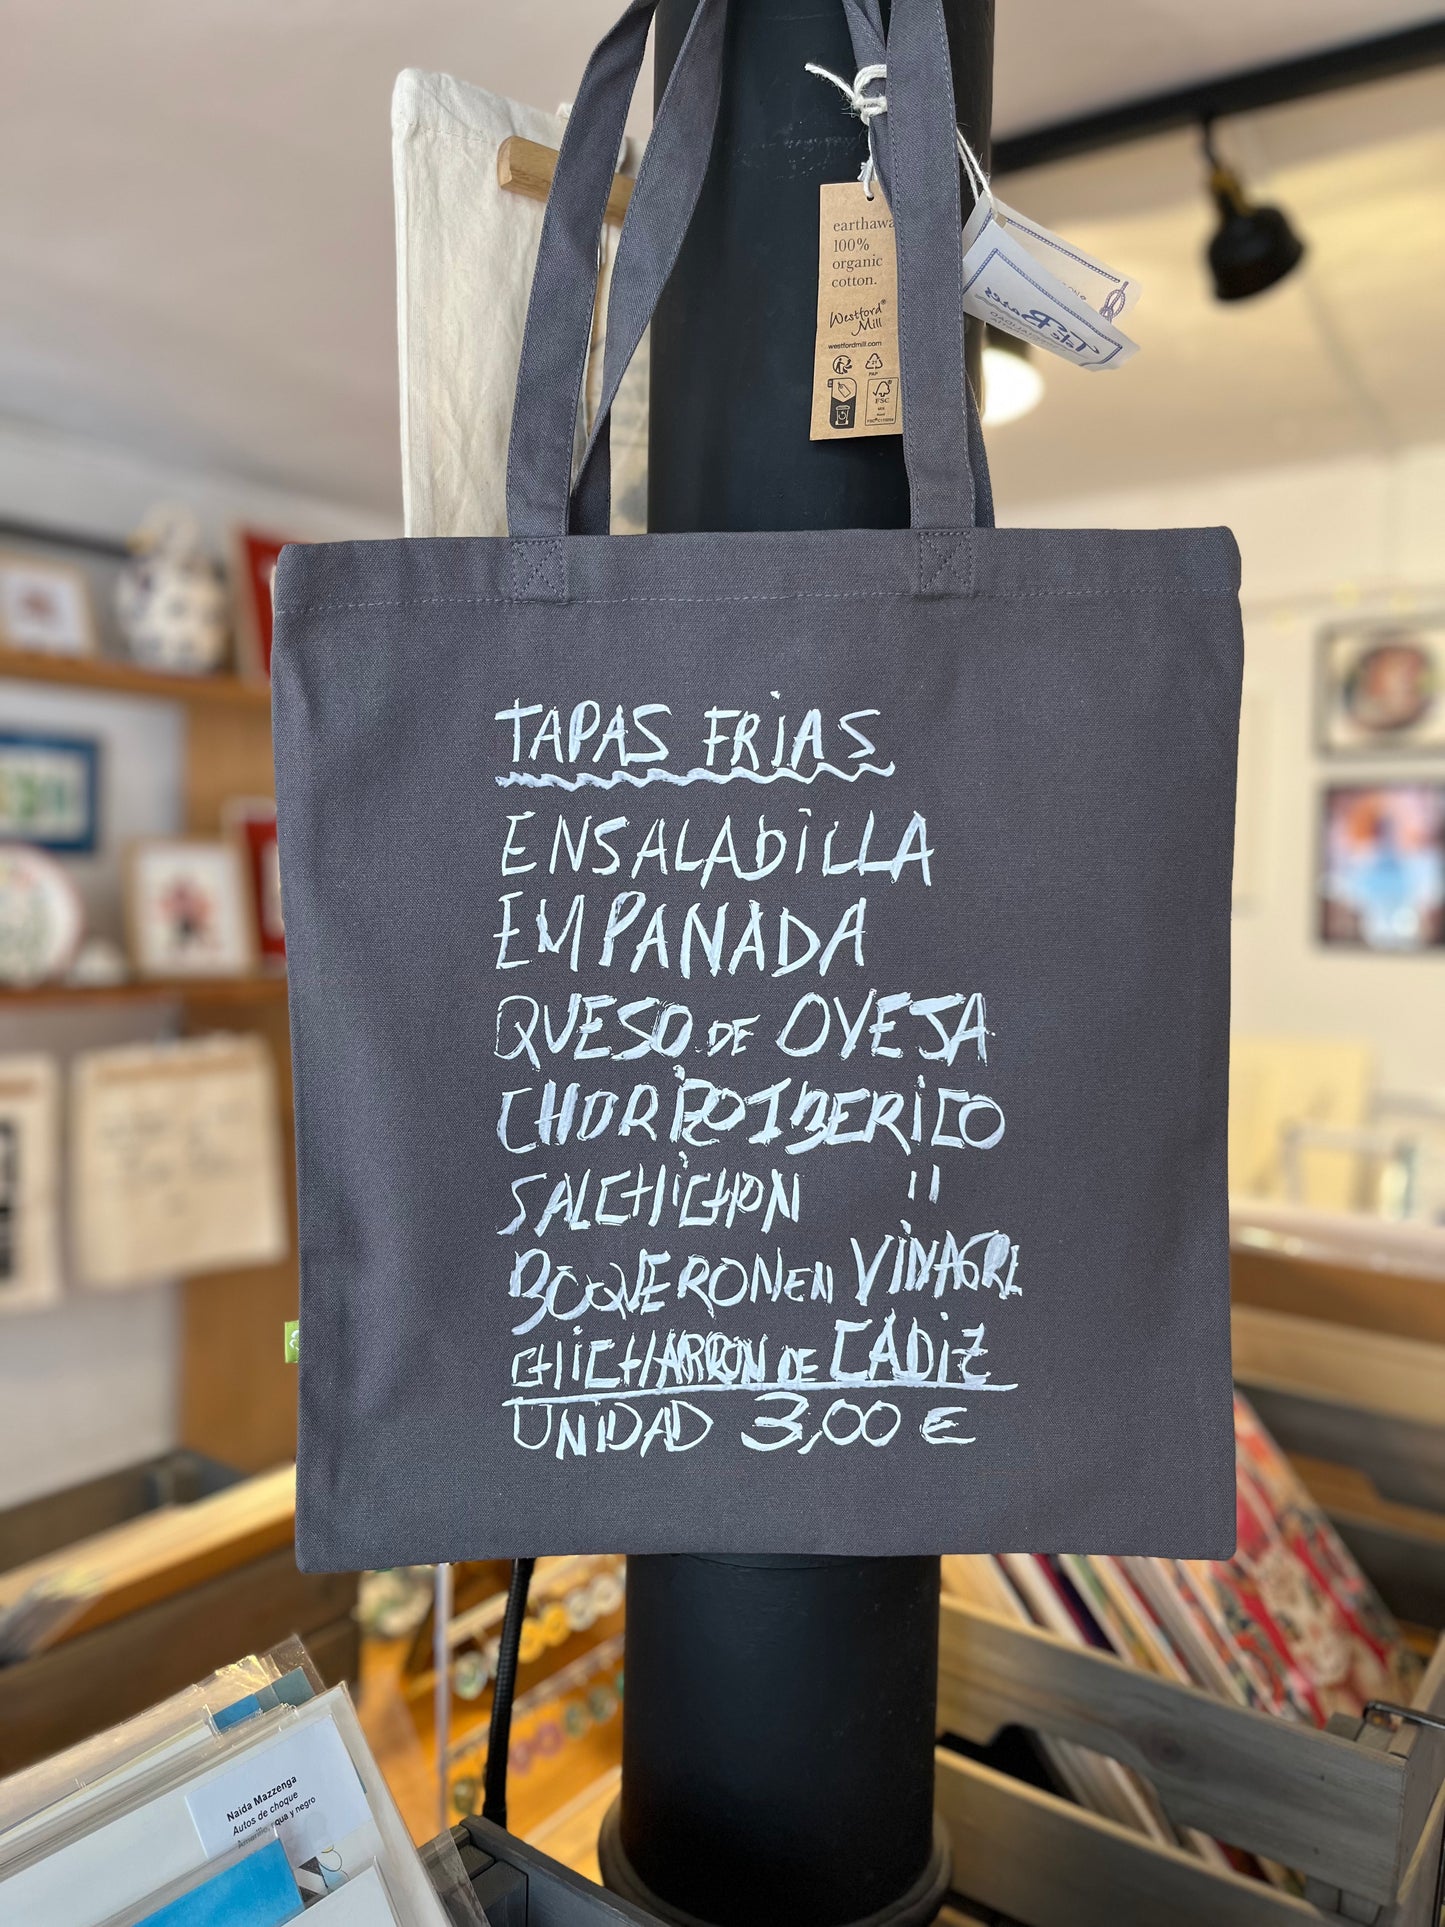 earthawa
100%
organic
cotton.
Westford®
Mill
westfordmill.com
PAP
FSC
TAPAS FRIAS
ENSALADILLA
EMPANADA
QUESO DE OVEJA
CHORIZO IBERICO
SALCHICHON "
BOQUERON EN VINAGRE
CHICHARRÓN DE CÁDIZ
UNIDAD 3,00 €
Naida Mazzenga
Autos de choque
Amarillo, aqua y negro